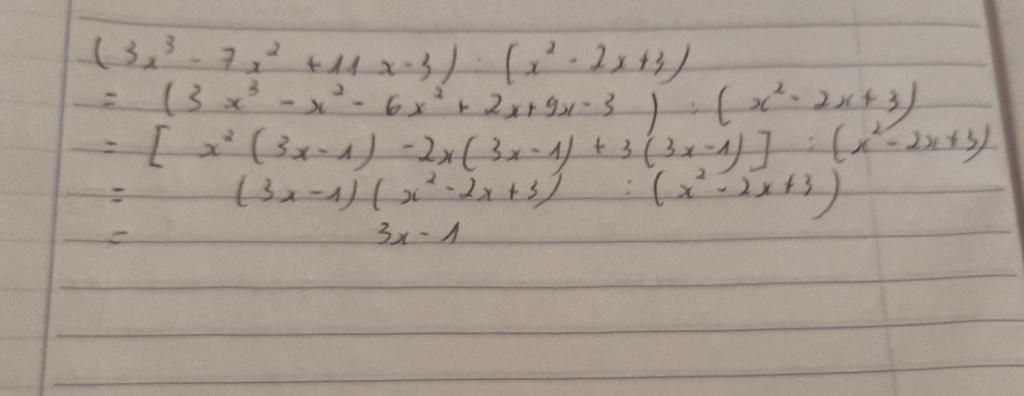 (3x³ - 7x² + 11x - 3) : (x² - 2x + 3)
= (3x³ - x² - 6x² + 2x + 9x - 3) : (x² - 2x + 3)
= [x² (3x - 1) - 2x (3x - 1) + 3 (3x - 1)] : (x² - 2x + 3)
= (3x - 1) (x² - 2x + 3) : (x² - 2x + 3)
= 3x - 1